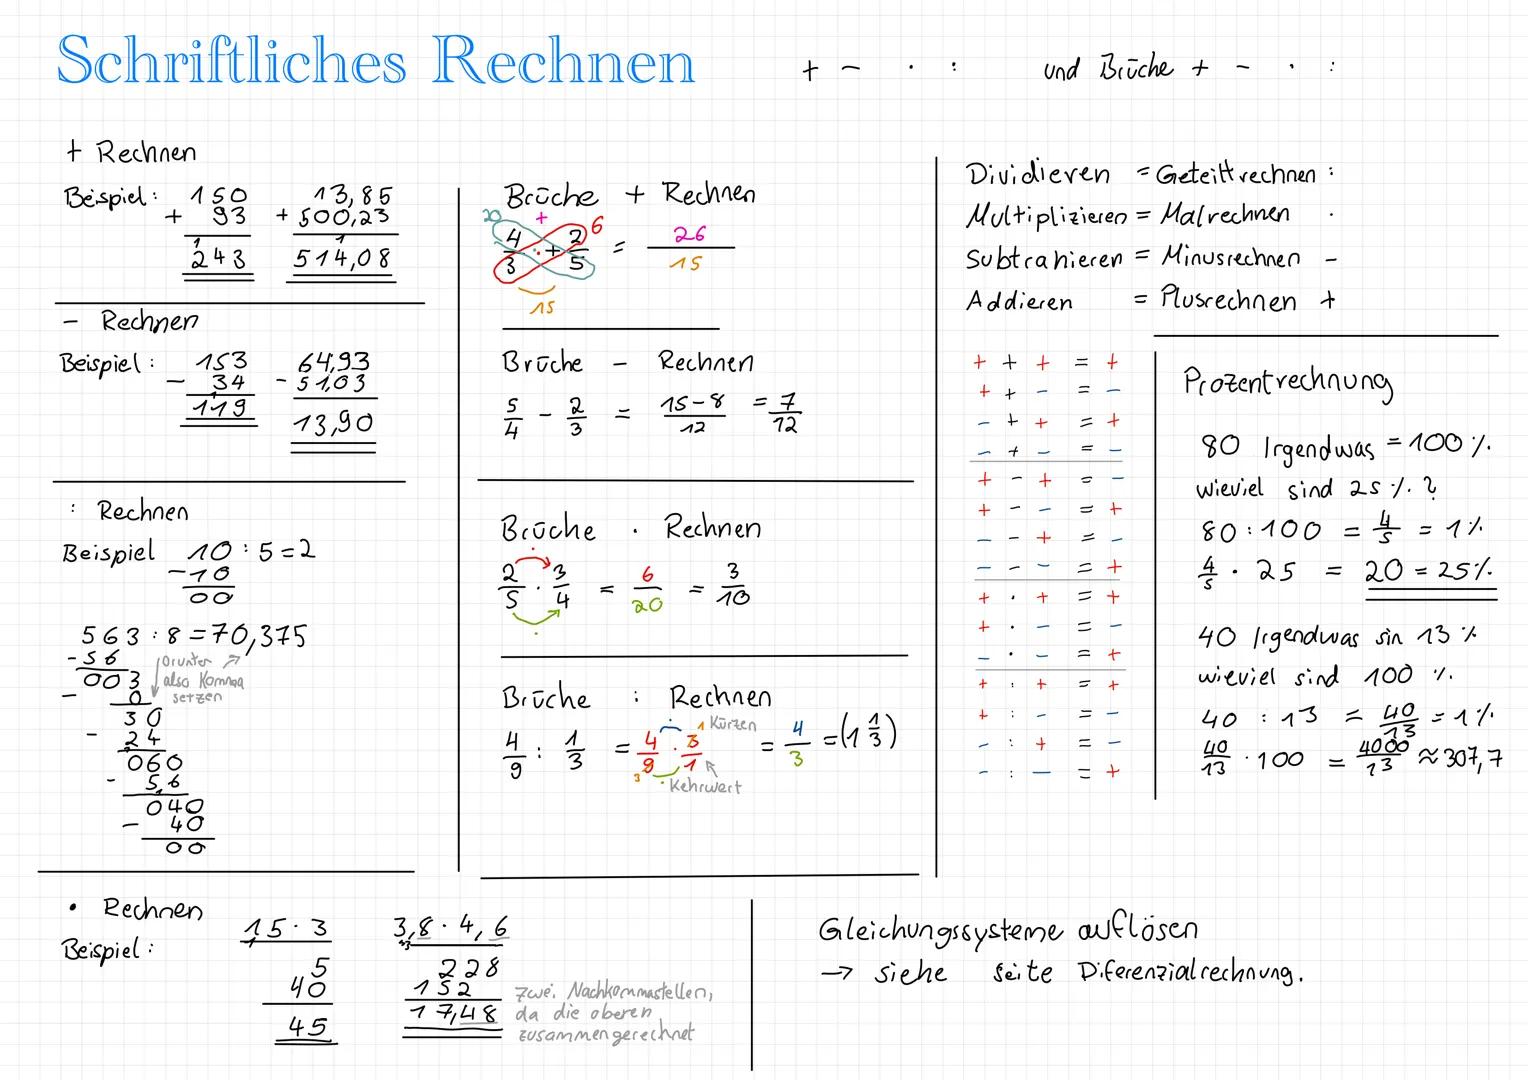 Schriftliches Rechnen + - · : und Brüche + - · :
+ Rechnen
Beispiel: 150 13,85
+ 93 + 500,23
1 1
243 514,08
- Rechnen
Beispiel: 153 64,93
- 34 - 51,03
1
119 13,90
: Rechnen
Beispiel 10 : 5 = 2
-10
00
563 : 8 = 70,375
-56
003
- 0
Drunter
also Komma
setzen
30
- 24
060
- 56
040
- 40
00
• Rechnen
Beispiel:
15 · 3
1
5
40
45
3,8 · 4,6
228
152
17,48
zwei Nachkommastellen,
da die oberen
zusammengerechnet
Brüche + Rechnen
20 + 6
4/3 + 2/5 = 26/15
15
Brüche - Rechnen
5/4 - 2/3 = 15-8/12 = 7/12
Brüche · Rechnen
2/5 · 3/4 = 6/20 = 3/10
Brüche : Rechnen
1 Kürzen
4/9 : 1/3 = 4/9 · 3/1 = 4/3 = (1 1/3)
3
Kehrwert
Dividieren = Geteiltrechnen :
Multiplizieren = Malrechnen ·
Subtrahieren = Minusrechnen -
Addieren = Plusrechnen +
+ + + = +
+ + - = -
- + + = +
- + - = -
+ - + = -
+ - - = +
- - + = -
- - - = +
+ · + = +
+ · - = -
- · - = +
+ : + = +
+ : - = -
- : + = -
- : - = +
Prozentrechnung
80 Irgendwas = 100 %.
wieviel sind 25 %. ?
80 : 100 = 4/5 = 1 %
4/5 · 25 = 20 = 25%.
40 Irgendwas sin 13 %
wieviel sind 100 %.
40 : 13 = 40/13 = 1 %
40/13 · 100 = 4000/13 ≈ 307,7
Gleichungssysteme auflösen
→ siehe Seite Diferenzialrechnung.